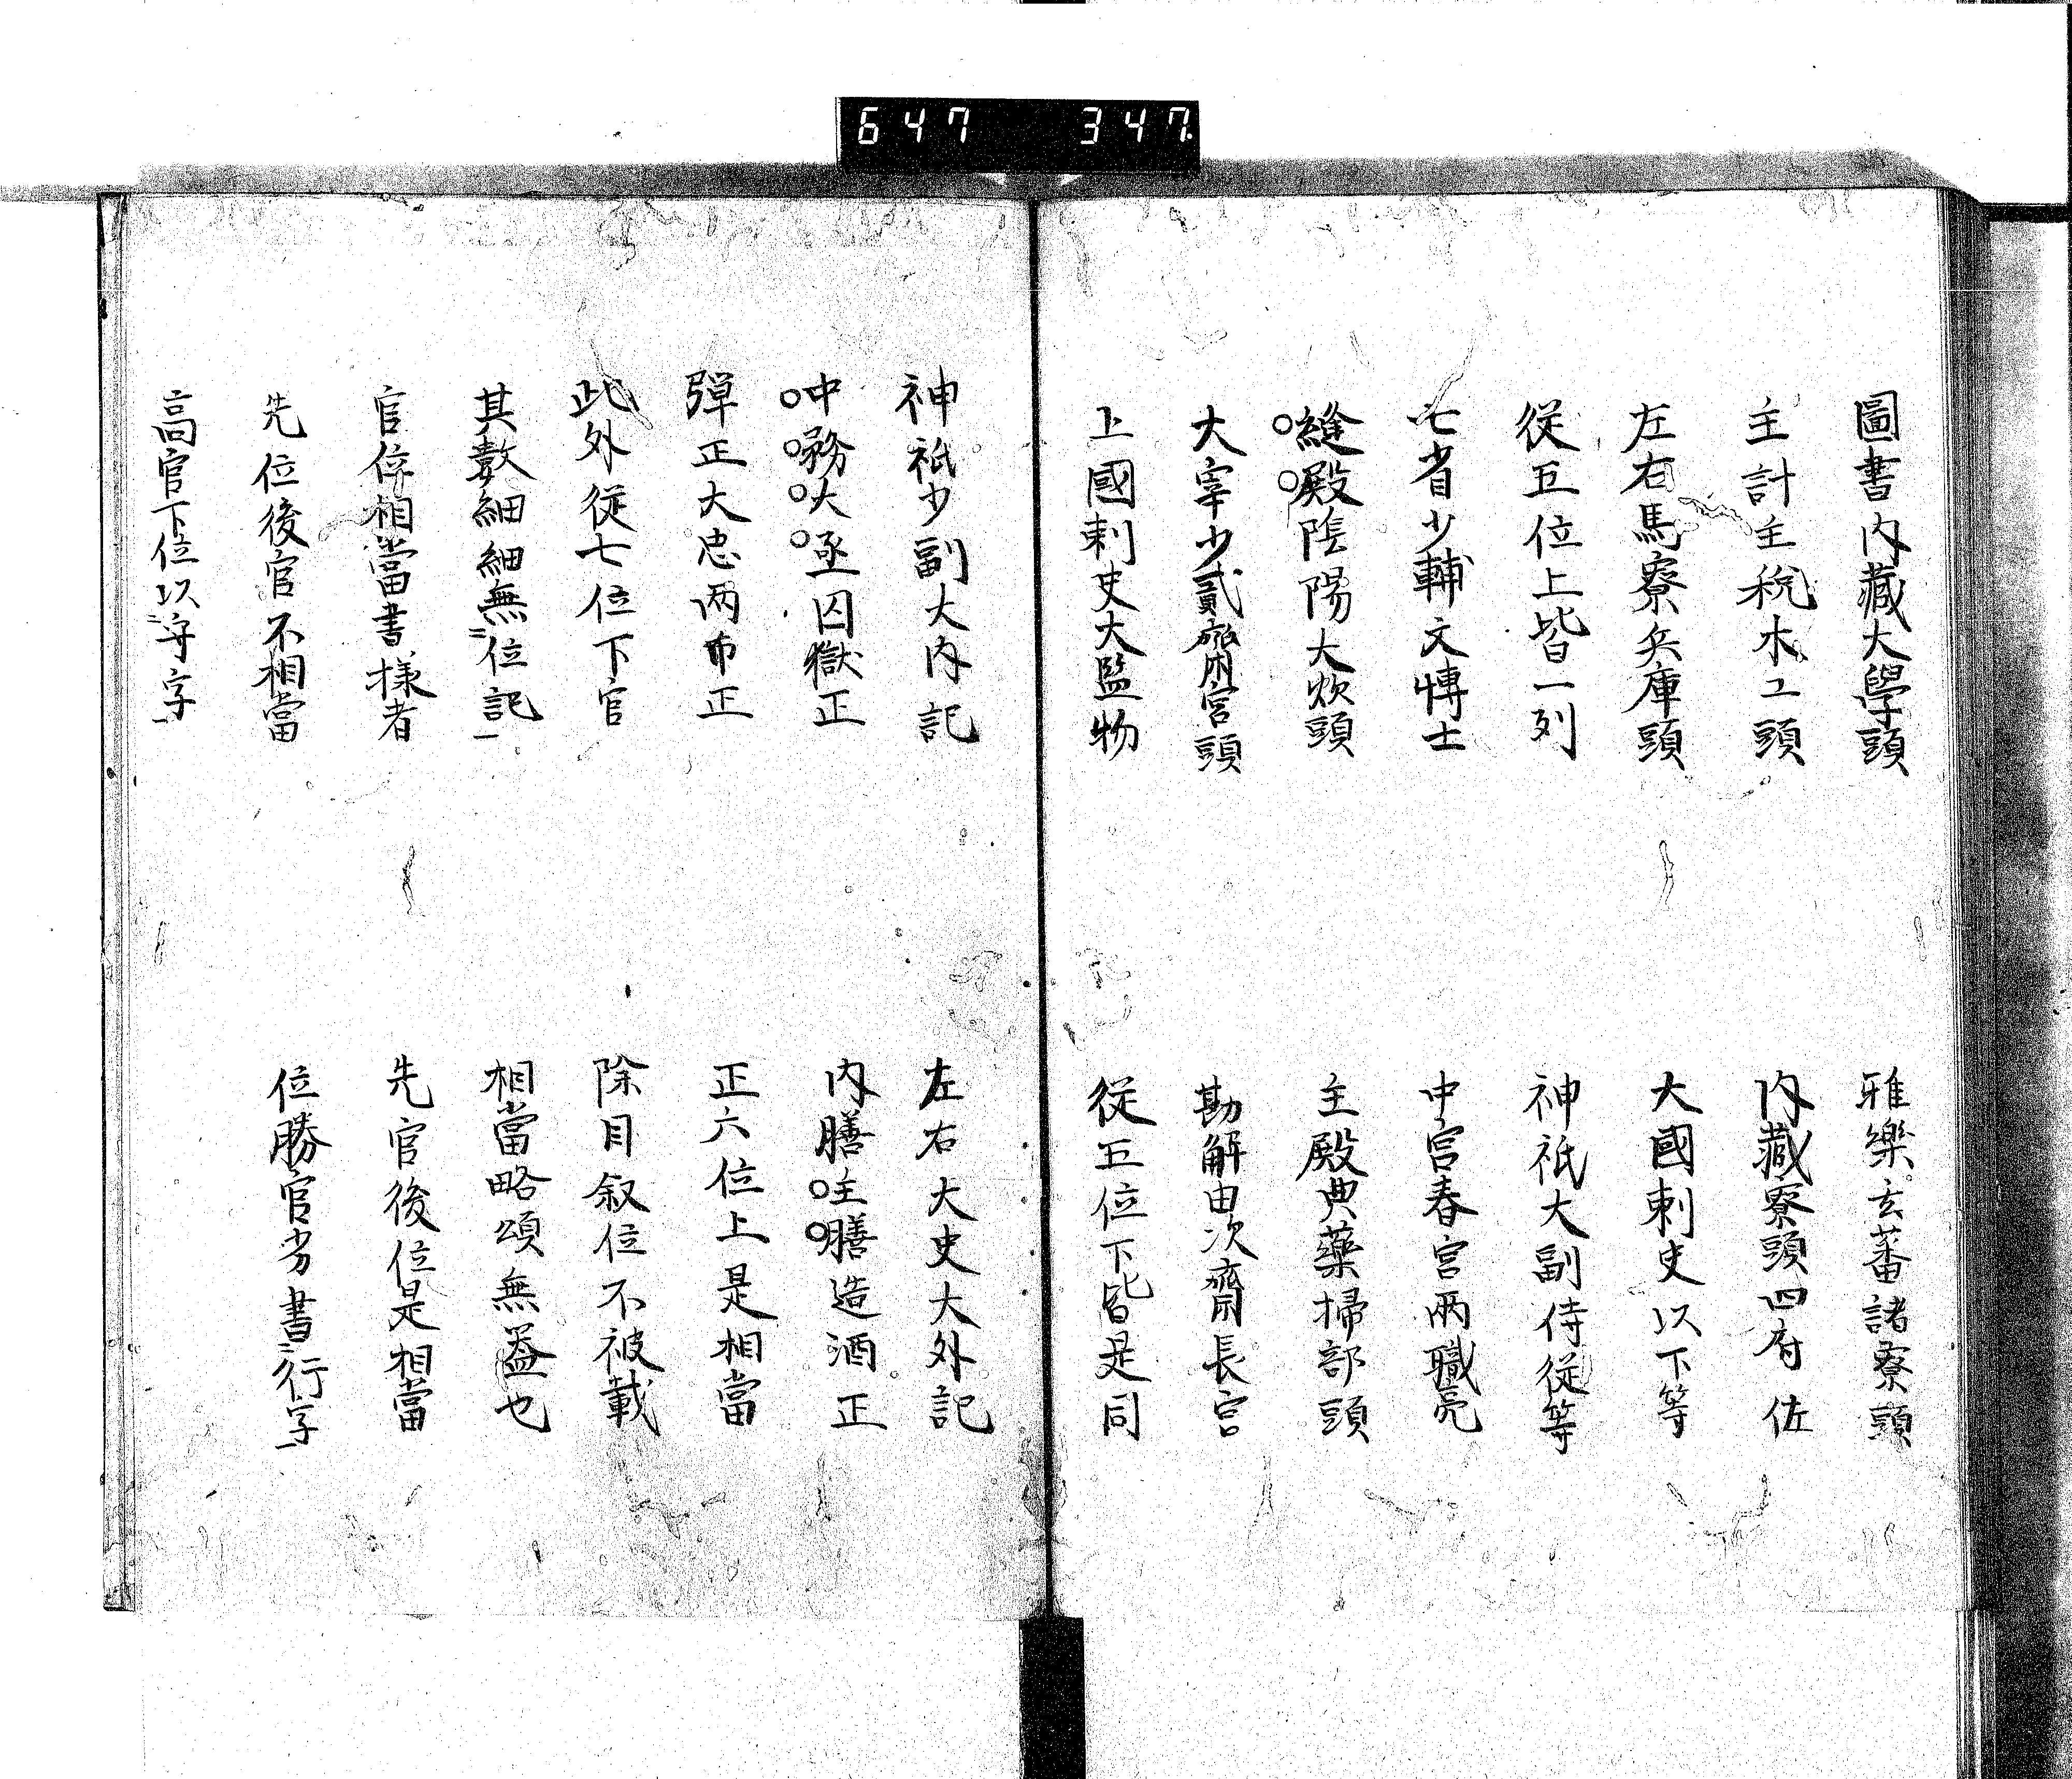 647 347.
圖書内藏大學頭
雅樂玄蕃諸寮頭
主計主税木工頭
内藏寮頭四府佐
左右馬寮兵庫頭
大國刺史以下等
従五位上皆一列
神祇大副侍従等
七省少輔文博士
中宮春宮兩職亮
縫殿陰陽大炊頭
主殿典藥掃部頭
大宰少貳齋宮頭
勘解由次齋長官
上國刺史大監物
従五位下皆是同
神祇少副大内記
左右大史大外記
中務大丞囚獄正
内膳主膳造酒正
弾正大忠两市正
正六位上是相當
此外従七位下官
除目叙位不被載
其數細細無位記
相當略頌無益也
官位相當書様者
先官後位是相當
先位後官不相當
位勝官劣書行字
高官下位以守字